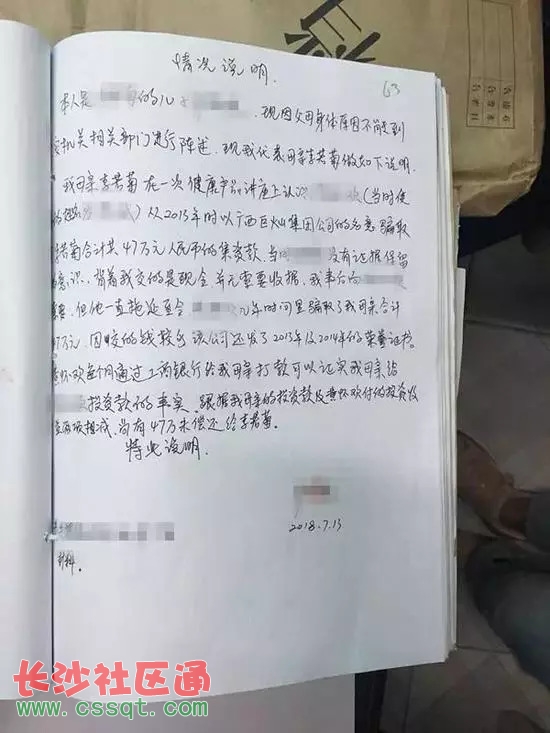 情况说明.
63
本人是 的儿子 . 现因父母身体原因不能到
机关相关部门进行陈述. 现我代表母亲李若菊做如下说明.
我母亲李若菊在一次健康产品讲座上认识 (当时使
) 从2013年时以广西巨火山集团公司的名意骗取
若菊合计共47万元人民币的集资款. 当时 没有证据保留
意识, 背着我交的是现金并无重要收据, 我事后向
, 但他一直拖延至今. 元年时间里骗取了我母亲合计
47万元, 因收的钱较多该公司还发了2013年以2014年的荣誉证书.
欢每个月通过工商银行给我母亲打款可以证实我母亲给
投资款的事实. 跟据我母亲的投资款及 欢付的投资收
两项相减, 尚有47万未偿还给李若菊.
特此说明.
2018.7.13
材料.
长沙社区通
www.cssqt.com